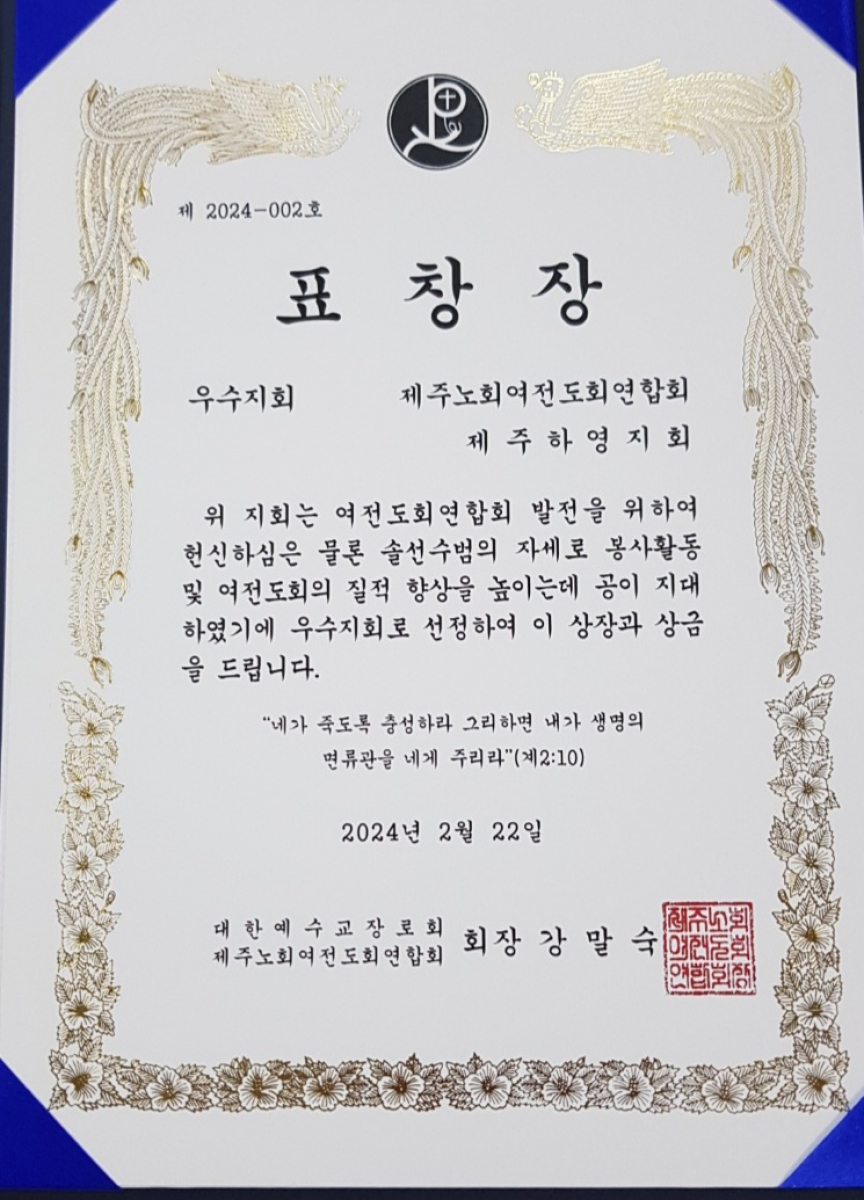 제 2024-002호
표 창 장
우수지회 제주노회여전도회연합회
제 주 하 영 지 회
위 지회는 여전도회연합회 발전을 위하여
헌신하심은 물론 솔선수범의 자세로 봉사활동
및 여전도회의 질적 향상을 높이는데 공이 지대
하였기에 우수지회로 선정하여 이 상장과 상금
을 드립니다.
"네가 죽도록 충성하라 그리하면 내가 생명의
면류관을 네게 주리라"(계2:10)
2024년 2월 22일
대 한 예 수 교 장 로 회
제주노회여전도회연합회 회장 강 말 숙
제주노회
여전도회
연합회장